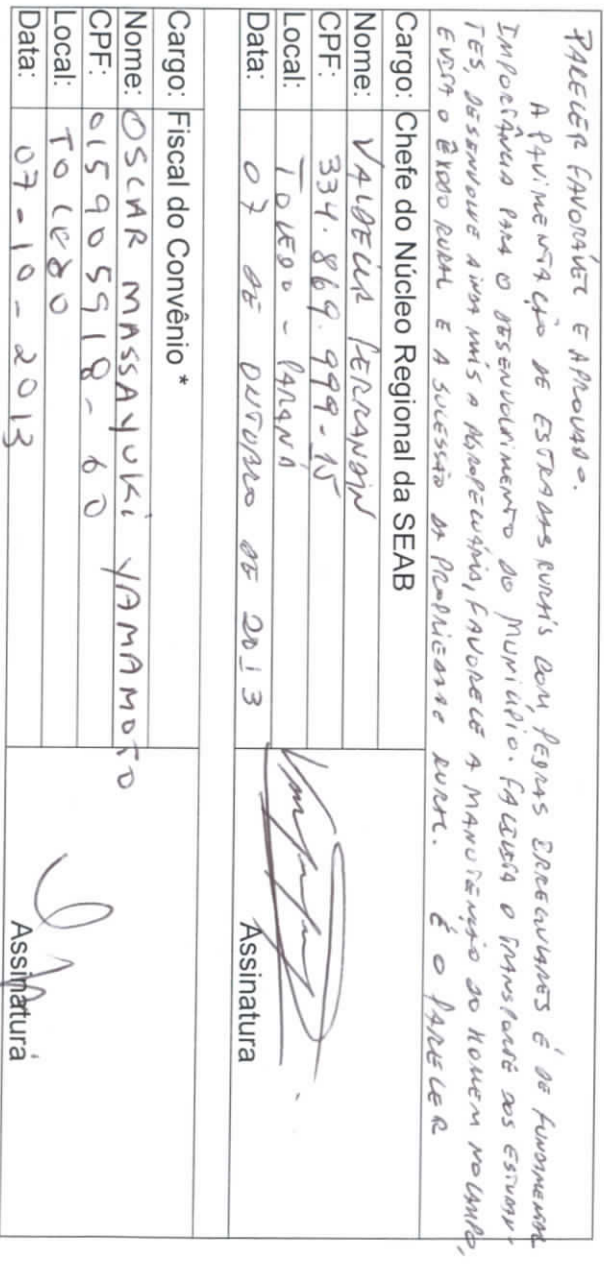 PARECER FAVORÁVEL E APROVADO.
A PAVIMENTAÇÃO DE ESTRADAS RURAIS COM PEDRAS IRREGULARES É DE FUNDAMENTAL
IMPORTÂNCIA PARA O DESENVOLVIMENTO DO MUNICÍPIO. FACILITA O TRANSPORTE DOS ESTUDAN-
TES, DESENVOLVE AINDA MAIS A AGROPECUÁRIA, FAVORECE A MANUTENÇÃO DO HOMEM NO CAMPO,
EVITA O ÊXODO RURAL E A SUCESSÃO DA PROPRIEDADE RURAL. É O PARECER
Cargo: Chefe do Núcleo Regional da SEAB
Nome: VALDECIR FERRANDIN
CPF: 334.869.999-15
Local: TOLEDO - PARANÁ
Data: 07 DE OUTUBRO DE 2013
Assinatura
Cargo: Fiscal do Convênio *
Nome: OSCAR MASSAYUKI YAMAMOTO
CPF: 015905918-60
Local: TOLEDO
Data: 07-10-2013
Assinatura